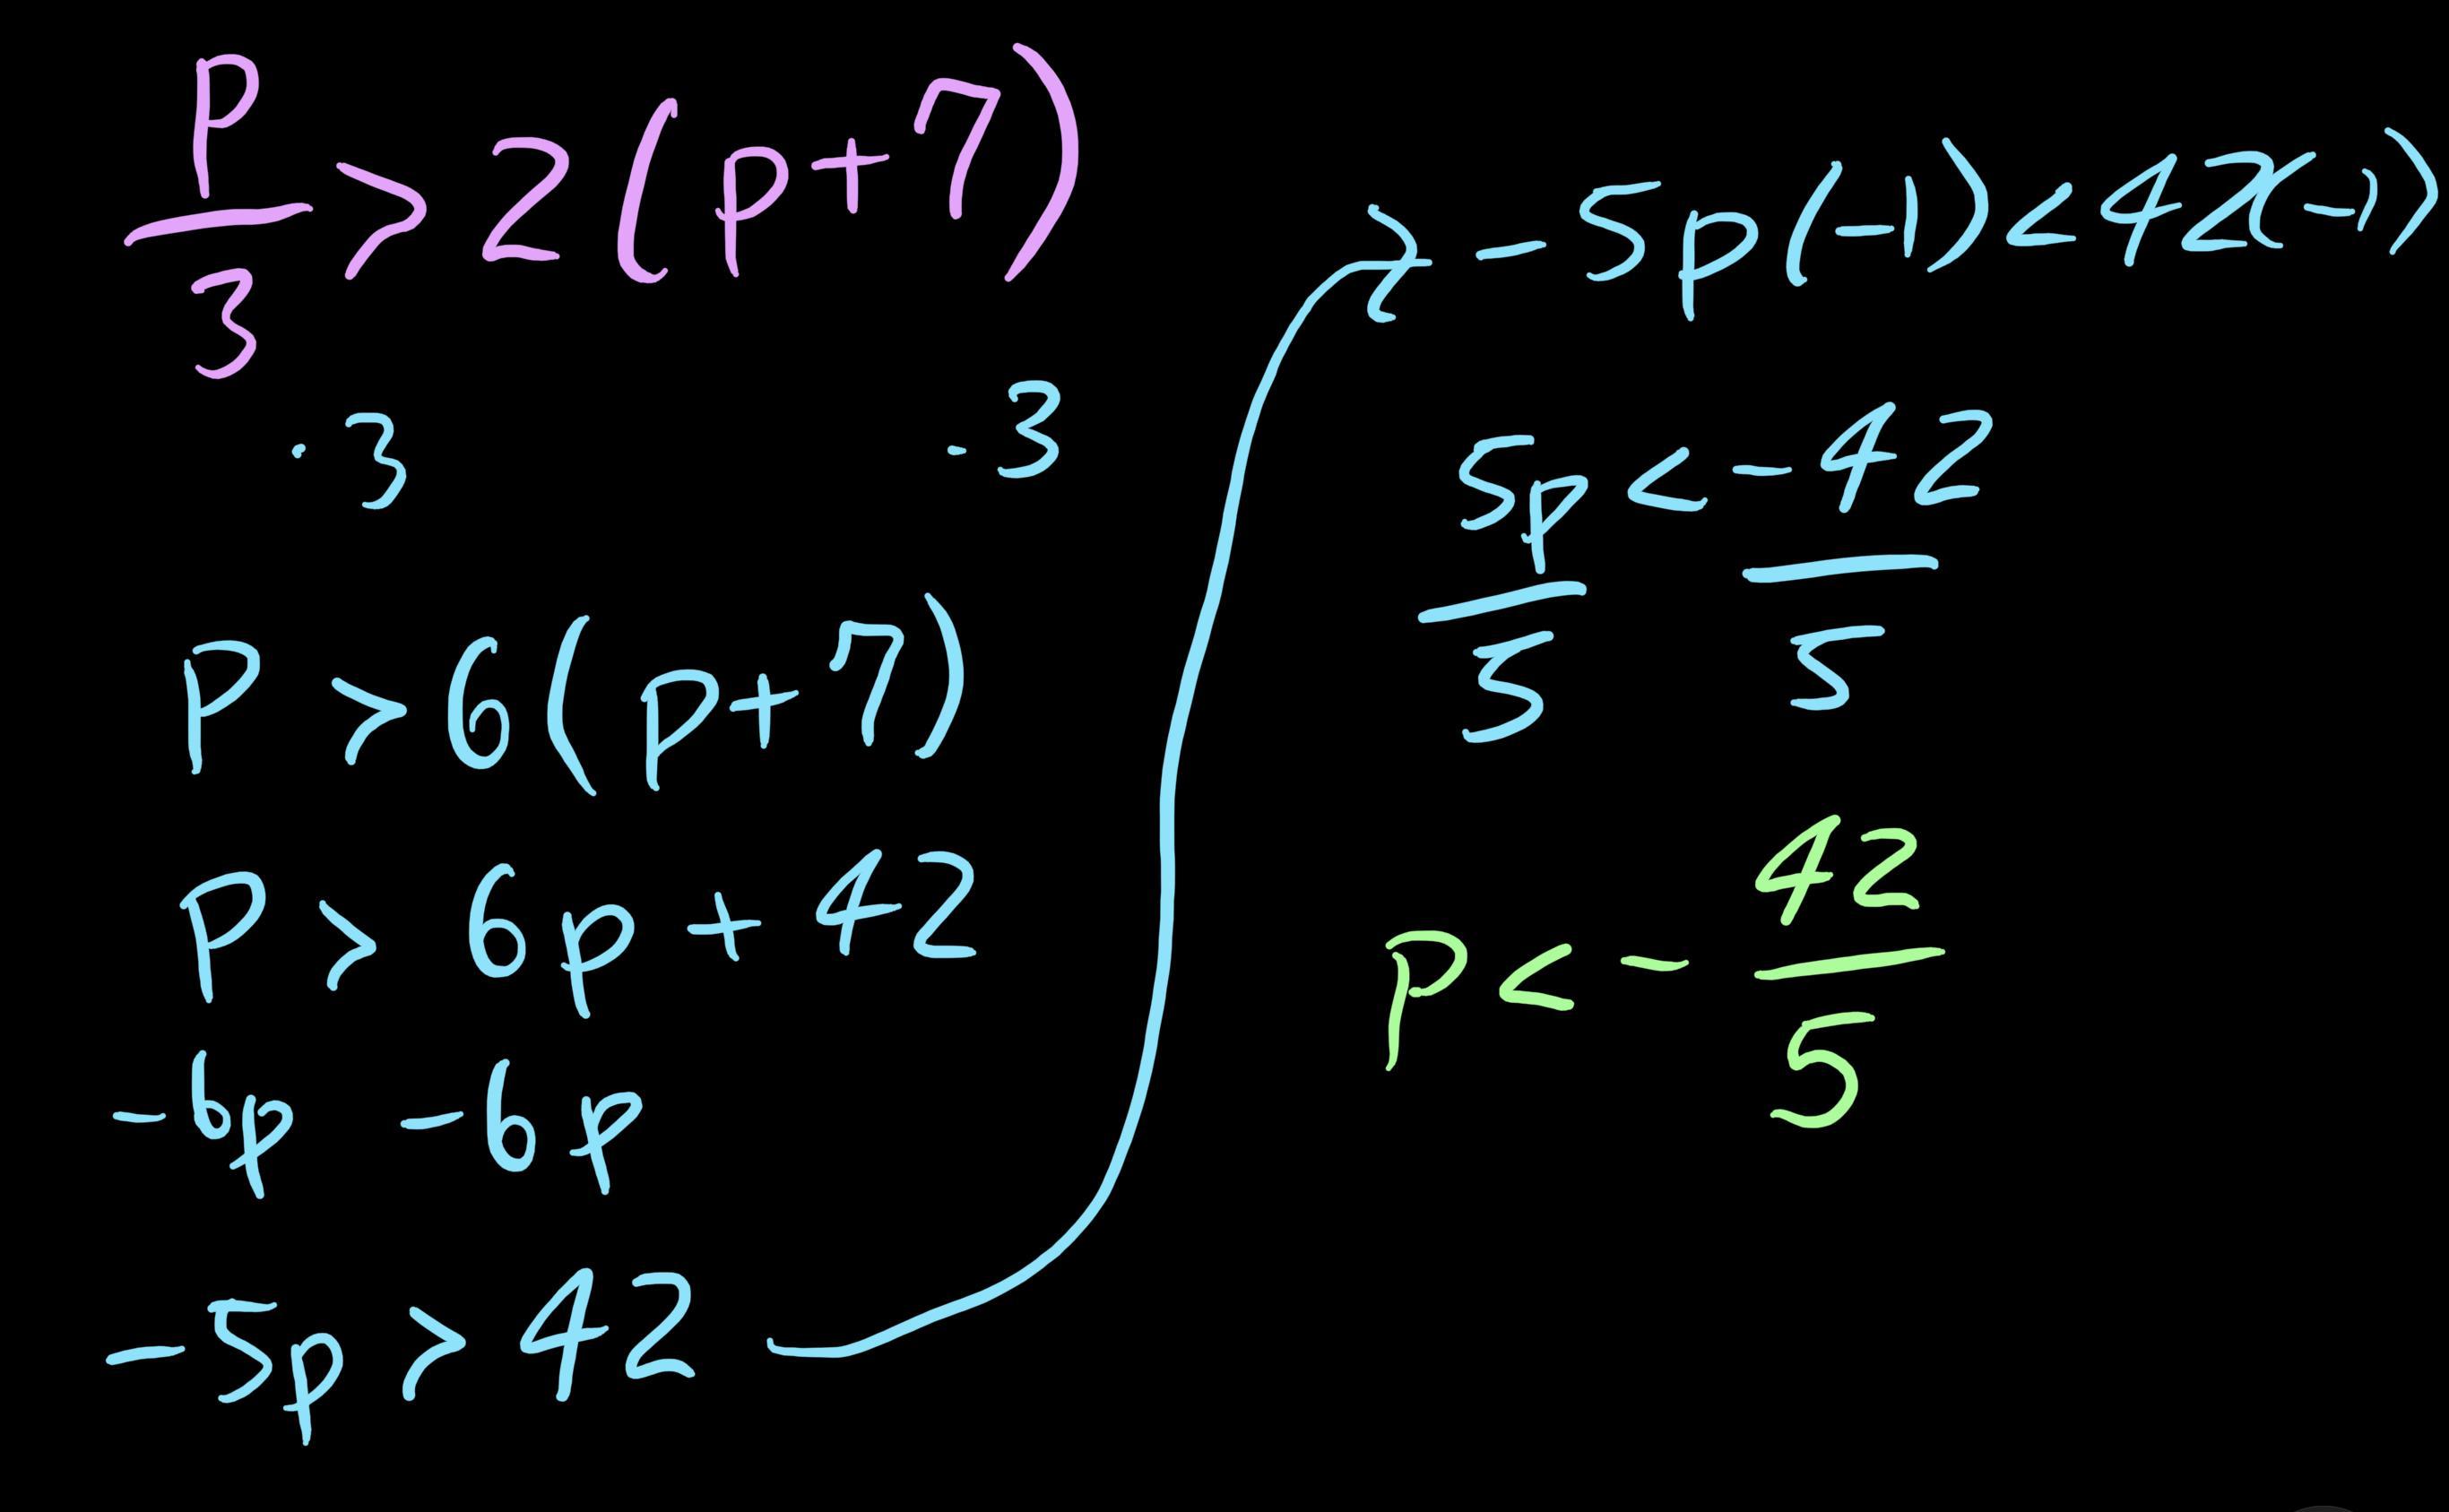 p/3 > 2(p+7)
·3 ·3
p > 6(p+7)
p > 6p + 42
-6p -6p
-5p > 42
-5p(-1) < 42(-1)
5p/5 < -42/5
p < - 42/5